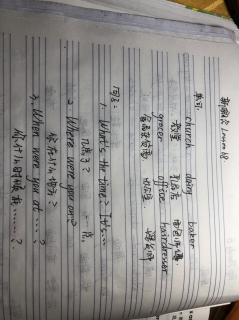 新概念 Lesson 18
单词:
church dairy baker
教堂 乳品店 面包师傅
grocer office hairdresser
食品杂货商 办公室 理发师
句型:
1. What's the time? It's...
几点了?
2. Where were you on...?
你在什么地方?
3. When were you at ......?
你什么时候在......?